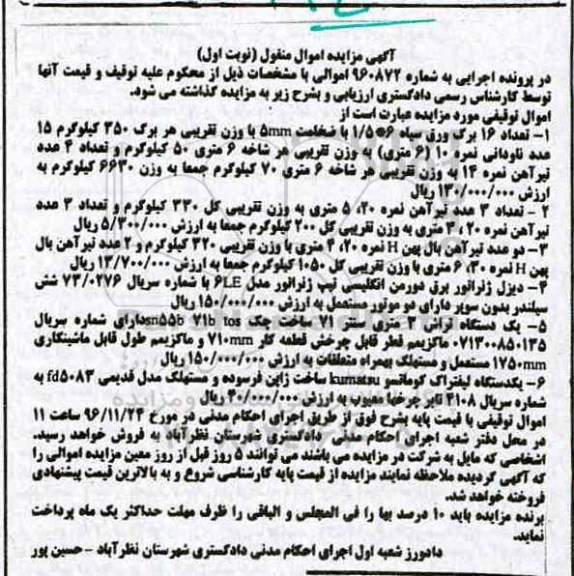 آگهی مزایده اموال منقول (نوبت اول)
در پرونده اجرایی به شماره ۹۶۰۸۷۲ اموالی با مشخصات ذیل از محکوم علیه توقیف و قیمت آنها
توسط کارشناس رسمی دادگستری ارزیابی و بشرح زیر به مزایده گذاشته می شود.
اموال توقیفی مورد مزایده عبارت است از
۱- تعداد ۱۶ برگ ورق سیاه ۶*۱/۵ با ضخامت ۵mm با وزن تقریبی هر برگ ۳۵۰ کیلوگرم ۱۵
عدد ناودانی نمره ۱۰ (۶ متری) به وزن تقریبی هر شاخه ۶ متری ۵۰ کیلوگرم و تعداد ۴ عدد
تیرآهن نمره ۱۴ به وزن تقریبی هر شاخه ۶ متری ۷۰ کیلوگرم جمعا به وزن ۶۶۳۰ کیلوگرم به
ارزش ۱۳۰/۰۰۰/۰۰۰ ریال
۲ - تعداد ۳ عدد تیرآهن نمره ۲۰، ۵ متری به وزن تقریبی کل ۳۳۰ کیلوگرم و تعداد ۳ عدد
تیرآهن نمره ۲۰، ۳ متری به وزن تقریبی کل ۲۰۰ کیلوگرم جمعا به ارزش ۵/۳۰۰/۰۰۰ ریال
۳- دو عدد تیرآهن بال پهن H نمره ۲۰، ۴ متری با وزن تقریبی ۳۲۰ کیلوگرم و ۲ عدد تیرآهن بال
پهن H نمره ۳۰، ۶ متری با وزن تقریبی کل ۱۰۵۰ کیلوگرم جمعا به ارزش ۱۳/۷۰۰/۰۰۰ ریال
۴- دیزل ژنراتور برق دورمن انگلیسی تیپ ژنراتور مدل ۶LE با شماره سریال ۷۳/۰۲۷۶ شش
سیلندر بدون سوپر دارای دو موتور مستعمل به ارزش ۱۵۰/۰۰۰/۰۰۰ ریال
۵- یک دستگاه تراش ۳ متری سنتر ۷۱ ساخت چک sn55b 71b tos دارای شماره سریال
۰۷۱۳۰۰۸۵۰۱۳۵ ماکزیمم قطر قابل چرخش قطعه کار ۷۱۰mm و ماکزیمم طول قابل ماشینکاری
۱۷۵۰mm مستعمل و مستهلک بهمراه متعلقات به ارزش ۱۵۰/۰۰۰/۰۰۰ ریال
۶- یکدستگاه لیفتراک کوماتسو kumatsu ساخت ژاپن فرسوده و مستهلک مدل قدیمی fd۵۰۸۳ به
شماره سریال ۴۱۰۸ تایر چرخها معیوب به ارزش ۴۰/۰۰۰/۰۰۰ ریال
اموال توقیفی با قیمت پایه بشرح فوق از طریق اجرای احکام مدنی در مورخ ۹۶/۱۱/۲۴ ساعت ۱۱
در محل دفتر شعبه اجرای احکام مدنی دادگستری شهرستان نظرآباد به فروش خواهد رسید.
اشخاصی که مایل به شرکت در مزایده می باشند می توانند ۵ روز قبل از روز معین مزایده اموالی را
که آگهی گردیده ملاحظه نمایند مزایده از قیمت پایه کارشناسی شروع و به بالاترین قیمت پیشنهادی
فروخته خواهد شد.
برنده مزایده باید ۱۰ درصد بها را فی المجلس و الباقی را ظرف مهلت حداکثر یک ماه پرداخت
نماید.
دادورز شعبه اول اجرای احکام مدنی دادگستری شهرستان نظرآباد - حسین پور